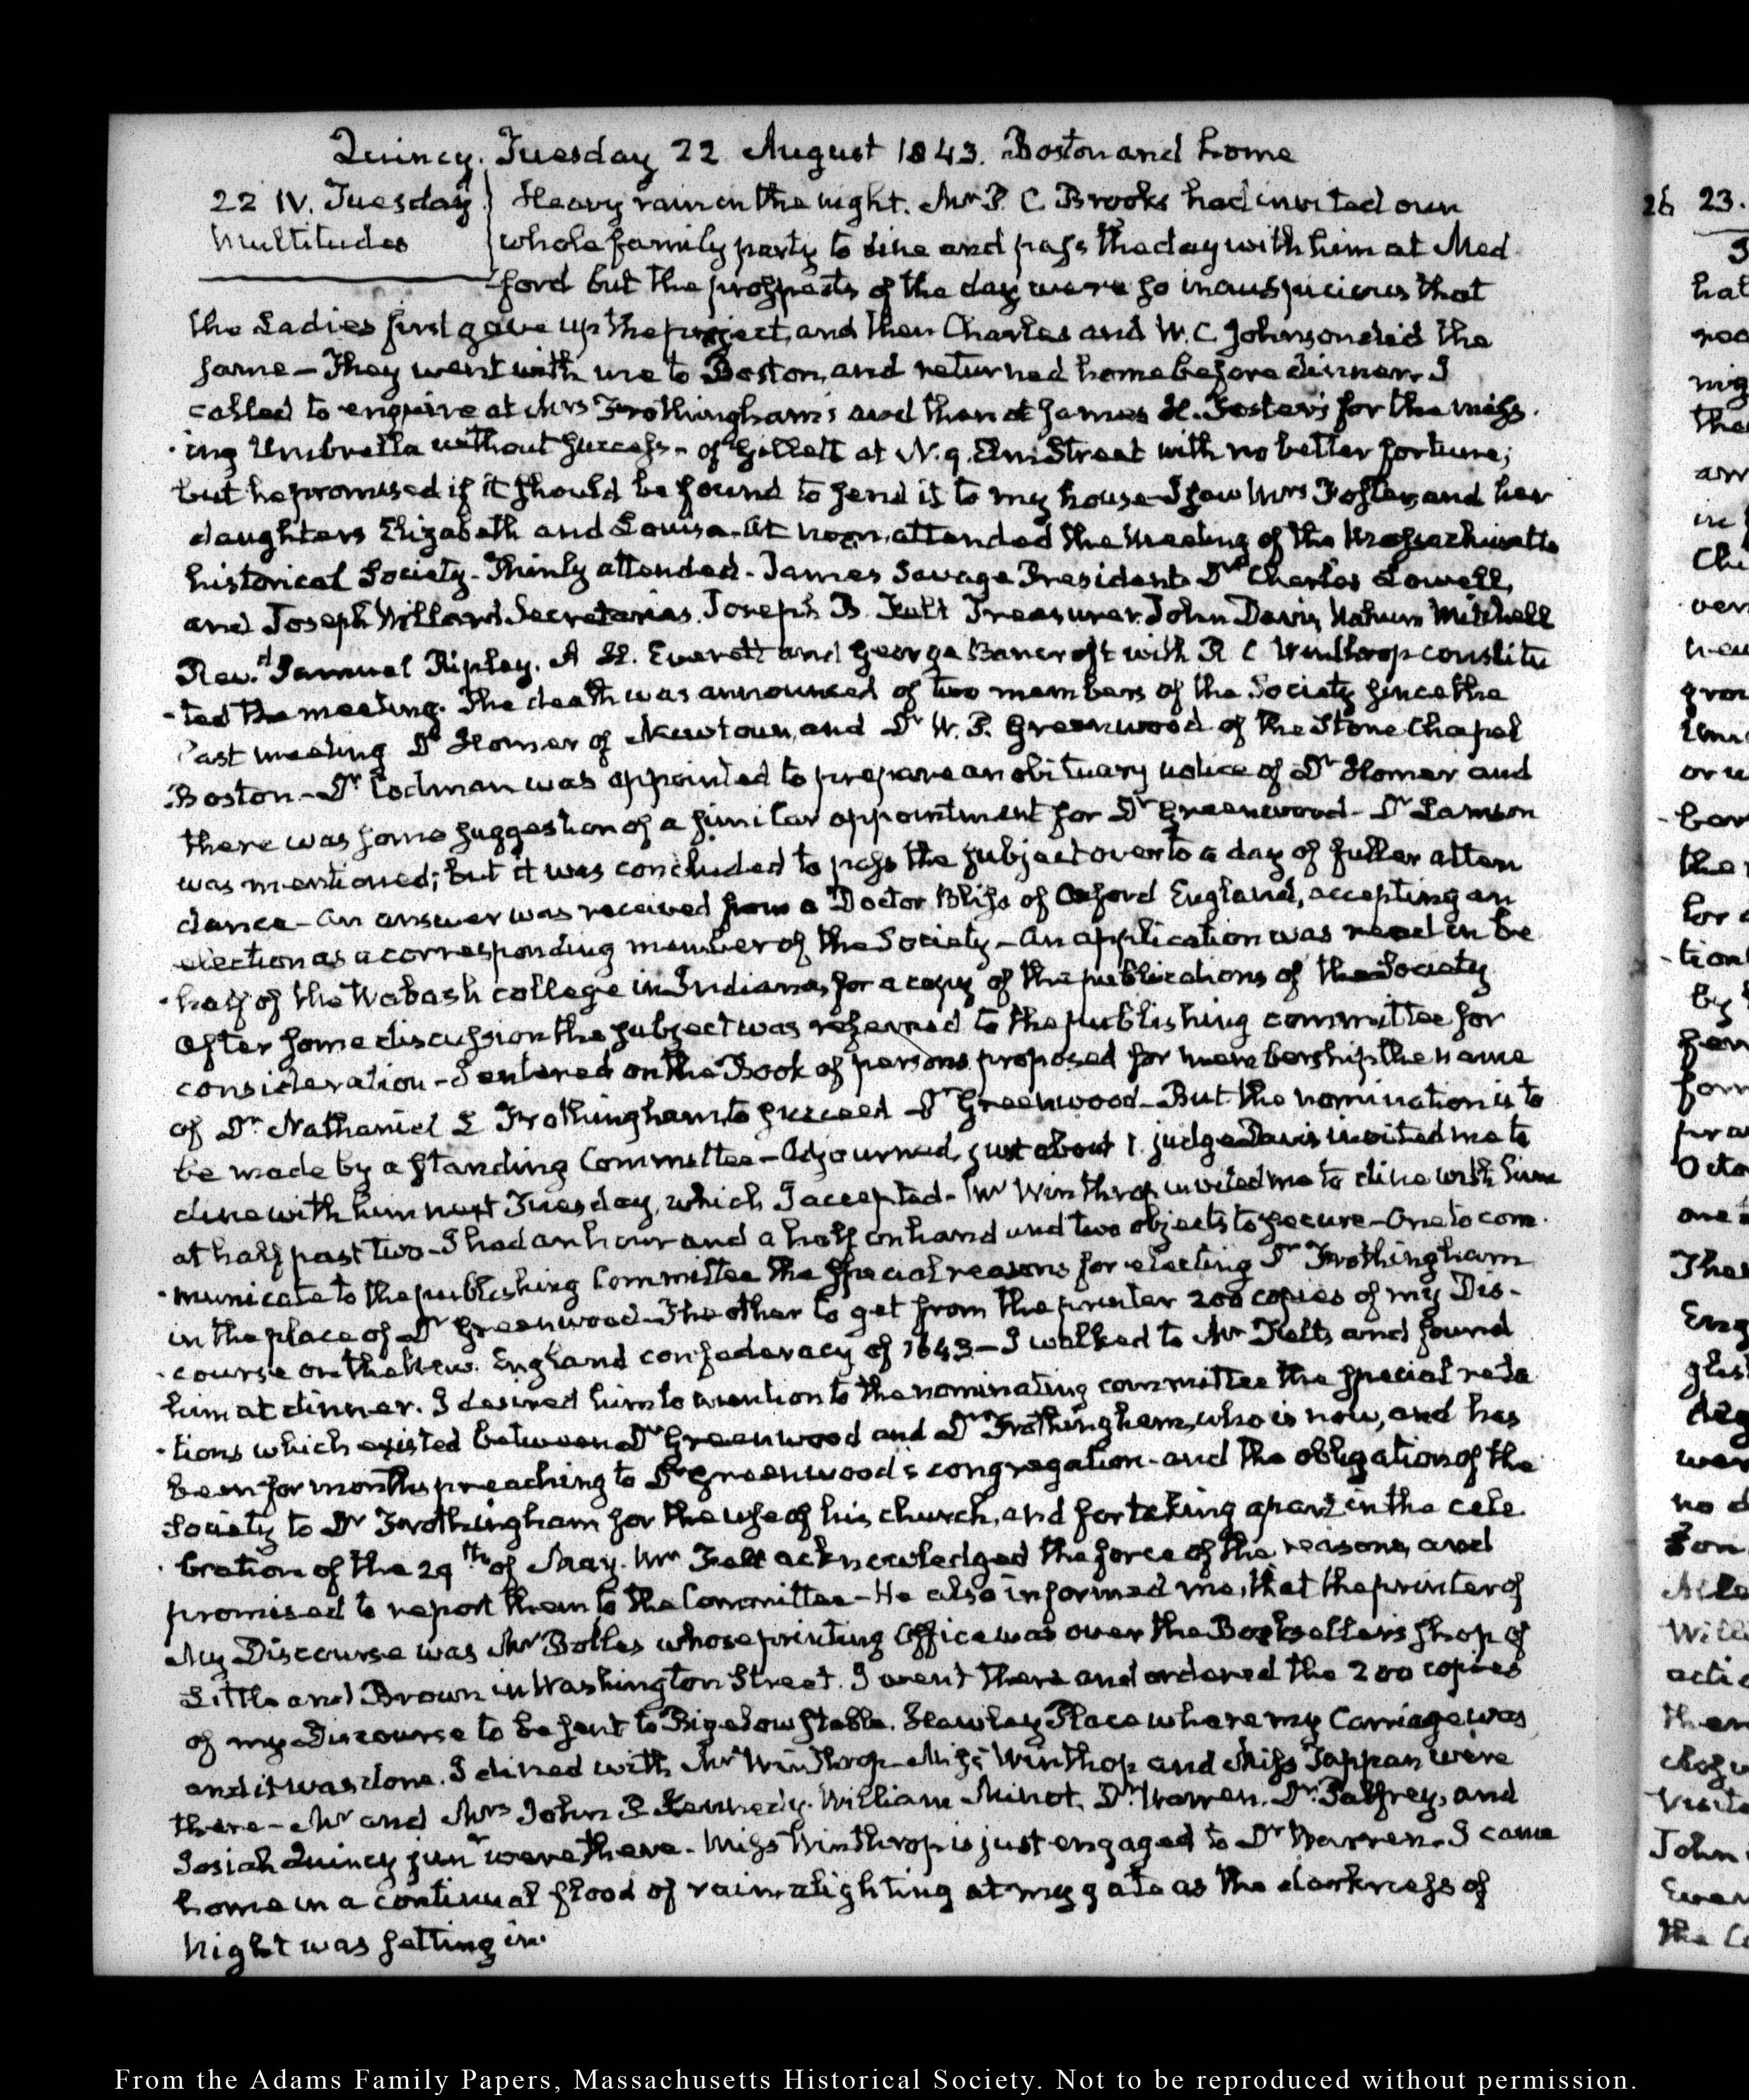 Quincy. Tuesday 22 August 1843. Boston and home
22 IV. Tuesday
Multitudes
Heavy rain in the night. Mr P. C. Brooks had invited our
whole family party to dine and pass the day with him at Med
ford but the prospects of the day were so inauspicious that
the Ladies first gave up the project, and then Charles and W. C. Johnson did the
same — They went with me to Boston, and returned home before dinner. I
called to enquire at Mrs Frothingham's and then at James H. Foster's for the miss-
ing Umbrella without success - of Gillett at N. 9. Elm Street with no better fortune;
but he promised if it should be found to send it to my house - I saw Mrs Foster, and her
daughters Elizabeth and Louisa. At noon, attended the meeting of the Massachusetts
historical Society - Thinly attended - James Savage President Dr Charles Lowell,
and Joseph Willard Secretaries. Joseph B. Felt Treasurer John Davis, Nahum Mitchell
Revd. Samuel Ripley. A H. Everett and George Bancroft with R C Winthrop constitu
-ted the meeting. The death was announced of two members of the Society since the
last meeting Dr Homer of Newtown, and Dr W. P. Greenwood of the Stone Chapel
Boston - Dr Codman was appointed to prepare an obituary notice of Dr Homer and
there was some suggestion of a similar appointment for Dr Greenwood - Dr Lamson
was mentioned; but it was concluded to pass the subject over to a day of fuller atten
dance - An answer was received from a Doctor Bliss of Oxford England, accepting an
election as a corresponding member of the Society - An application was read in be
-half of the Wabash college in Indiana, for a copy of the publications of the Society
After some discussion the subject was referred to the publishing committee for
consideration - I entered on the Book of persons proposed for membership the name
of Dr. Nathaniel L Frothingham, to succeed Dr Greenwood - But the nomination is to
be made by a standing Committee - Adjourned, just about 1. judge Davis invited me to
dine with him next Tuesday, which I accepted - Mr Winthrop invited me to dine with him
at half past two - I had an hour and a half on hand and two objects to secure - One to com-
-municate to the publishing Committee the special reasons for electing Dr Frothingham
in the place of Dr Greenwood - The other to get from the printer 200 copies of my Dis-
-course on the New. England confederacy of 1643 - I walked to Mr Felt's and found
him at dinner. I desired him to mention to the nominating committee the special rela
-tions which existed between Dr Greenwood and Dr Frothingham, who is now, and has
been for months preaching to Dr Greenwood's congregation - and the obligation of the
Society to Dr Frothingham for the use of his church, and for taking a part in the cele
-bration of the 29th of May. Mr Felt acknowledged the force of the reasons, and
promised to report them to the Committee - He also informed me, that the printer of
My Discourse was Mr Bolles whose printing Office was over the Booksellers shop of
Little and Brown in Washington Street. I went there and ordered the 200 copies
of my Discourse to be sent to Bigelow stable. Hawley Place where my Carriage was
and it was done. I dined with Mr Winthrop - Miss Winthop and Miss Tappan were
there - Mr and Mrs John P. Kennedy. William Minot, Dr. Warren. Dr. Palfrey, and
Josiah Quincy junr were there. Miss Winthrop is just engaged to Dr Warren. I came
home in a continual flood of rain, alighting at my gate as the darkness of
Night was setting in.
26 23.
From the Adams Family Papers, Massachusetts Historical Society. Not to be reproduced without permission.